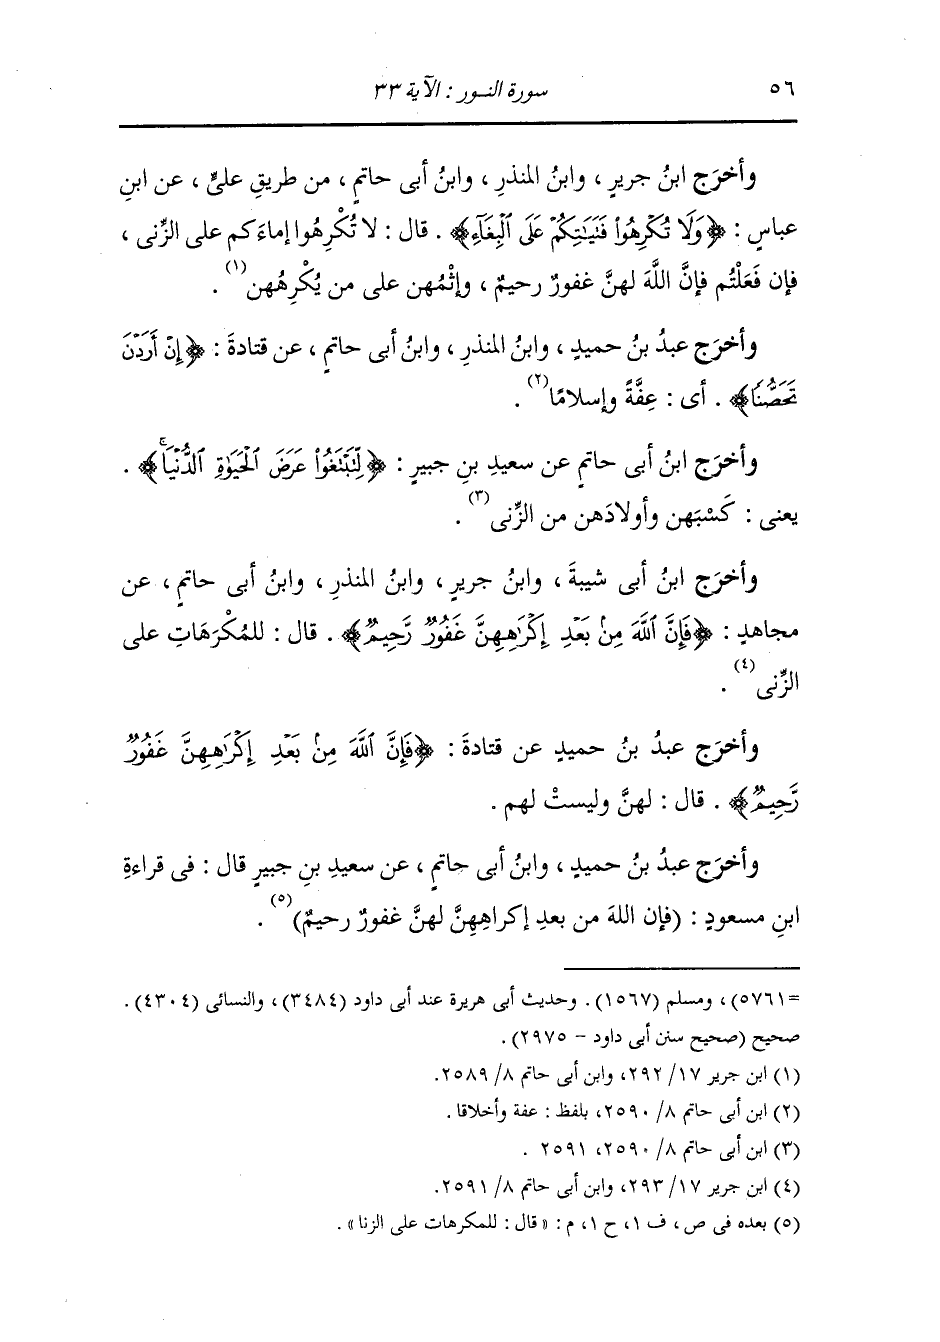 ٥٦
سورة النــور : الآية ٣٣
وأخرَج ابنُ جريرٍ ، وابنُ المنذرِ ، وابنُ أبى حاتمٍ ، من طريقِ علىٍّ ، عن ابنِ
عباسٍ : ﴿وَلَا تُكْرِهُوا۟ فَتَيَـٰتِكُمْ عَلَى ٱلْبِغَآءِ﴾ . قال : لا تُكْرِهُوا إماءَكم على الزِّنى ،
فإن فَعَلْتُم فإنَّ اللَّهَ لهنَّ غفورٌ رحيمٌ ، وإثْمُهن على من يُكْرِهُهن(١) .
وأخرَج عبدُ بنُ حميدٍ ، وابنُ المنذرِ ، وابنُ أبى حاتمٍ ، عن قتادةَ : ﴿إِنْ أَرَدْنَ
تَحَصُّنًا﴾ . أى : عِفَّةً وإسلامًا(٢) .
وأخرَج ابنُ أبى حاتمٍ عن سعيدِ بنِ جبيرٍ : ﴿لِّتَبْتَغُوا۟ عَرَضَ ٱلْحَيَوٰةِ ٱلدُّنْيَا ۚ﴾ .
يعنى : كَسْبَهن وأولادَهن من الزِّنى(٣) .
وأخرَج ابنُ أبى شيبةَ ، وابنُ جريرٍ ، وابنُ المنذرِ ، وابنُ أبى حاتمٍ ، عن
مجاهدٍ : ﴿فَإِنَّ ٱللَّهَ مِنۢ بَعْدِ إِكْرَٰهِهِنَّ غَفُورٌ رَّحِيمٌ﴾ . قال : للمُكْرَهَاتِ على
الزِّنى(٤) .
وأخرَج عبدُ بنُ حميدٍ عن قتادةَ : ﴿فَإِنَّ ٱللَّهَ مِنۢ بَعْدِ إِكْرَٰهِهِنَّ غَفُورٌ
رَّحِيمٌ﴾ . قال : لهنَّ وليستْ لهم .
وأخرَج عبدُ بنُ حميدٍ ، وابنُ أبى حاتمٍ ، عن سعيدِ بنِ جبيرٍ قال : فى قراءةِ
ابنِ مسعودٍ : (فإن اللهَ من بعدِ إكراهِهِنَّ لهنَّ غفورٌ رحيمٌ)(٥) .
=٥٧٦١) ، ومسلم (١٥٦٧) . وحديث أبى هريرة عند أبى داود (٣٤٨٤) ، والنسائى (٤٣٠٤) .
صحيح (صحيح سنن أبى داود - ٢٩٧٥) .
(١) ابن جرير ١٧/ ٢٩٢، وابن أبى حاتم ٨/ ٢٥٨٩.
(٢) ابن أبى حاتم ٨/ ٢٥٩٠، بلفظ : عفة وأخلاقا .
(٣) ابن أبى حاتم ٨/ ٢٥٩٠، ٢٥٩١ .
(٤) ابن جرير ١٧/ ٢٩٣، وابن أبى حاتم ٨/ ٢٥٩١.
(٥) بعده فى ص ، ف ١، ح ١، م : « قال : للمكرهات على الزنا » .